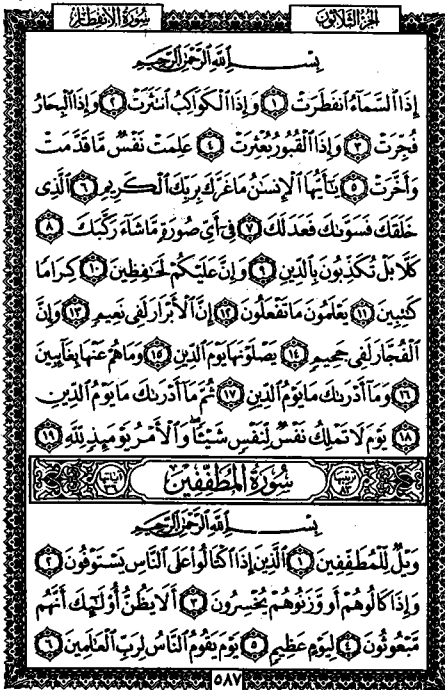 سُورَةُ الانفِطَارِ الجُزءُ الثَّلَاثُونَ
بِسْمِ ٱللَّهِ ٱلرَّحْمَٰنِ ٱلرَّحِيمِ
إِذَا ٱلسَّمَآءُ ٱنفَطَرَتْ ١ وَإِذَا ٱلْكَوَاكِبُ ٱنتَثَرَتْ ٢ وَإِذَا ٱلْبِحَارُ
فُجِّرَتْ ٣ وَإِذَا ٱلْقُبُورُ بُعْثِرَتْ ٤ عَلِمَتْ نَفْسٌ مَّا قَدَّمَتْ
وَأَخَّرَتْ ٥ يَٰٓأَيُّهَا ٱلْإِنسَٰنُ مَا غَرَّكَ بِرَبِّكَ ٱلْكَرِيمِ ٦ ٱلَّذِى
خَلَقَكَ فَسَوَّىٰكَ فَعَدَلَكَ ٧ فِىٓ أَىِّ صُورَةٍ مَّا شَآءَ رَكَّبَكَ ٨
كَلَّا بَلْ تُكَذِّبُونَ بِٱلدِّينِ ٩ وَإِنَّ عَلَيْكُمْ لَحَٰفِظِينَ ١٠ كِرَامًا
كَٰتِبِينَ ١١ يَعْلَمُونَ مَا تَفْعَلُونَ ١٢ إِنَّ ٱلْأَبْرَارَ لَفِى نَعِيمٍ ١٣ وَإِنَّ
ٱلْفُجَّارَ لَفِى جَحِيمٍ ١٤ يَصْلَوْنَهَا يَوْمَ ٱلدِّينِ ١٥ وَمَا هُمْ عَنْهَا بِغَآئِبِينَ
١٦ وَمَآ أَدْرَىٰكَ مَا يَوْمُ ٱلدِّينِ ١٧ ثُمَّ مَآ أَدْرَىٰكَ مَا يَوْمُ ٱلدِّينِ
١٨ يَوْمَ لَا تَمْلِكُ نَفْسٌ لِّنَفْسٍ شَيْـًٔا وَٱلْأَمْرُ يَوْمَئِذٍ لِّلَّهِ ١٩
سُورَةُ المُطَفِّفِينَ
بِسْمِ ٱللَّهِ ٱلرَّحْمَٰنِ ٱلرَّحِيمِ
وَيْلٌ لِّلْمُطَفِّفِينَ ١ ٱلَّذِينَ إِذَا ٱكْتَالُوا۟ عَلَى ٱلنَّاسِ يَسْتَوْفُونَ ٢
وَإِذَا كَالُوهُمْ أَو وَّزَنُوهُمْ يُخْسِرُونَ ٣ أَلَا يَظُنُّ أُو۟لَٰٓئِكَ أَنَّهُم
مَّبْعُوثُونَ ٤ لِيَوْمٍ عَظِيمٍ ٥ يَوْمَ يَقُومُ ٱلنَّاسُ لِرَبِّ ٱلْعَٰلَمِينَ ٦
٥٨٧